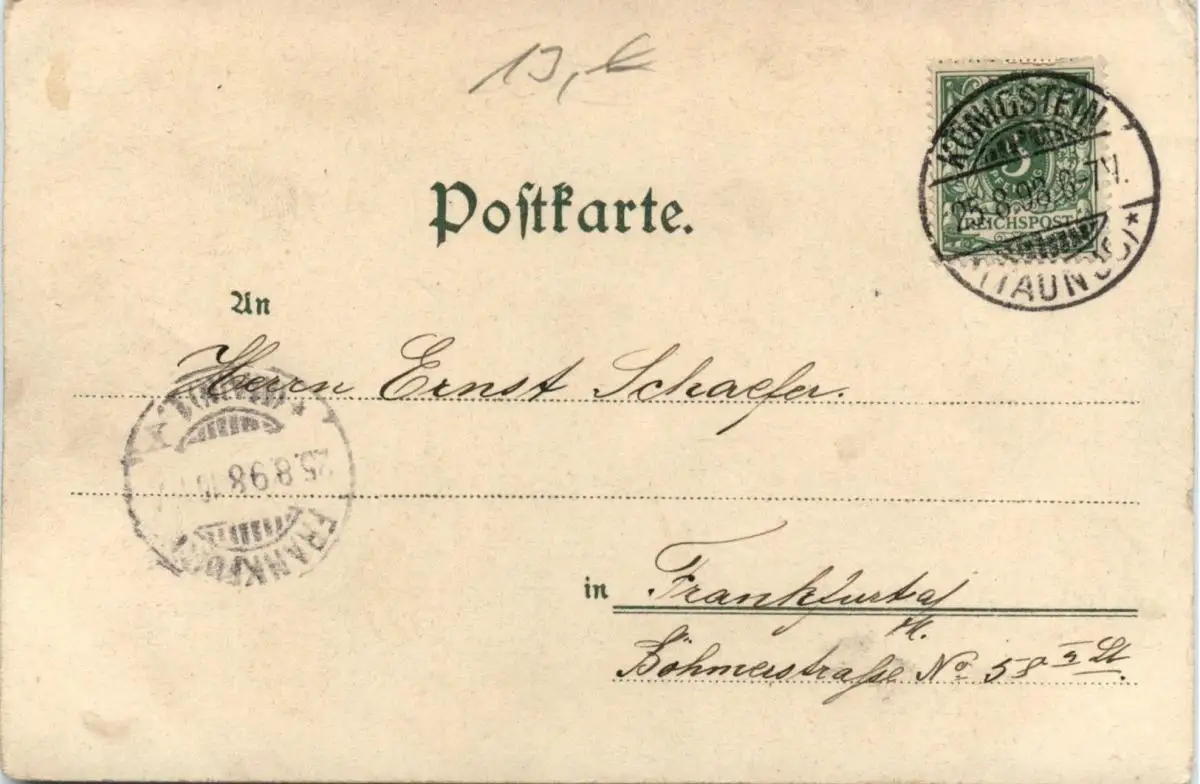 13,-
KÖNIGSTEIN
25.8.98.6-7N.
(TAUNUS)*
5
REICHSPOST
Postkarte.
An
Herrn Ernst Schaefer.
25.8.98
FRANKFURT
in Frankfurt a/
M.
Böhmerstraße No 58